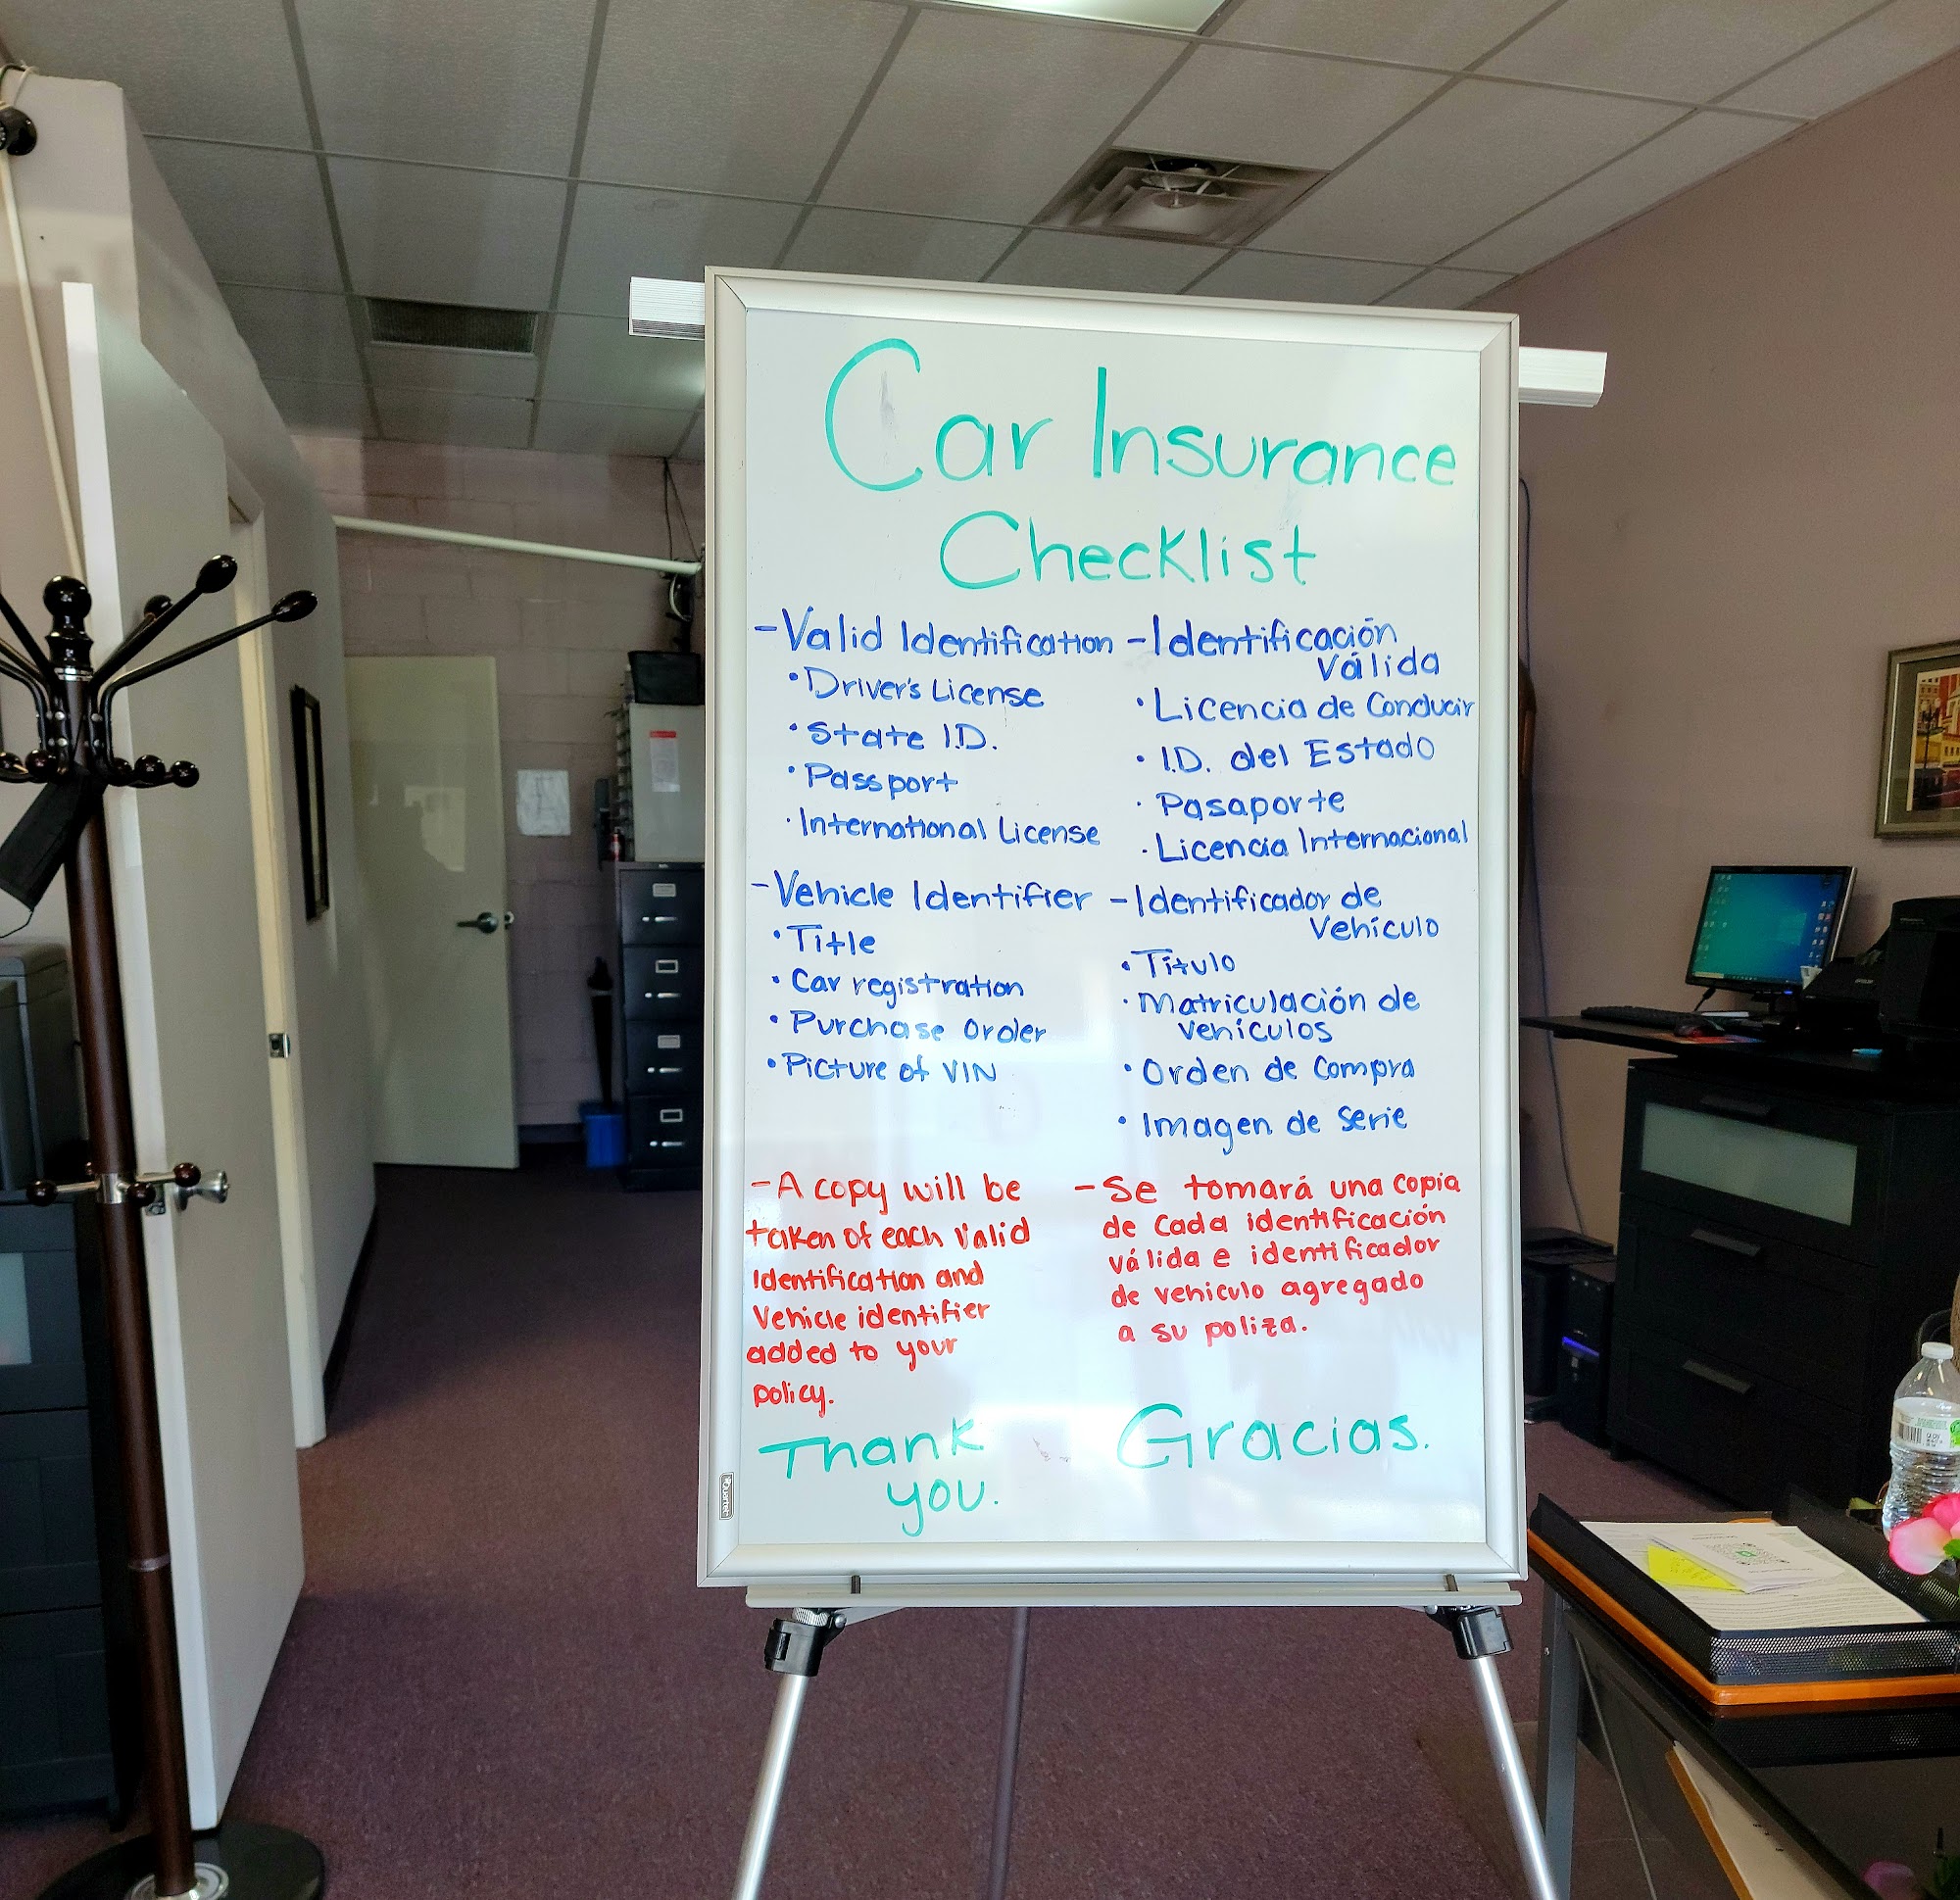 Car Insurance
Checklist
-Valid Identification
•Driver's License
•State I.D.
•Passport
•International License
-Vehicle Identifier
•Title
•Car registration
•Purchase order
•Picture of VIN
-A copy will be
taken of each valid
Identification and
Vehicle identifier
added to your
policy.
Thank
you.
-Identificación
válida
•Licencia de Conducir
•I.D. del Estado
•Pasaporte
•Licencia Internacional
-Identificador de
Vehículo
•Título
•Matriculación de
vehículos
•Orden de Compra
•Imagen de Serie
-Se tomará una copia
de Cada identificación
válida e identificador
de vehiculo agregado
a su poliza.
Gracias.
Quartet